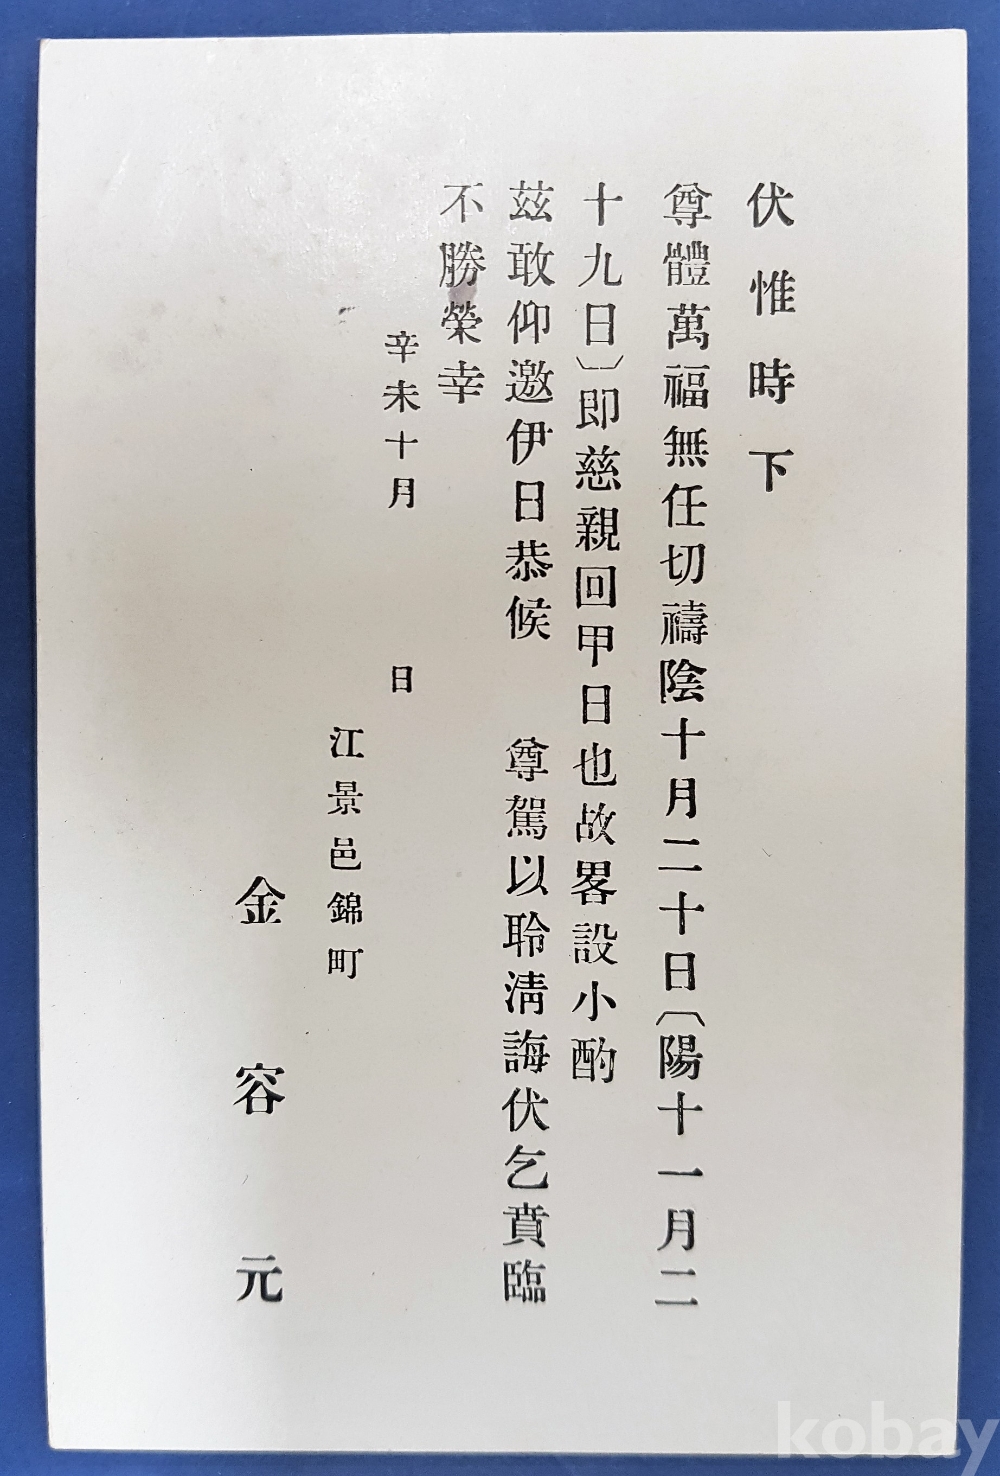 伏惟時下
尊體萬福無任切禱陰十月二十日〔陽十一月二
十九日〕即慈親回甲日也故畧設小酌
玆敢仰邀伊日恭候　尊駕以聆淸誨伏乞賁臨
不勝榮幸
辛未十月　日
江景邑錦町
金容元
kobay